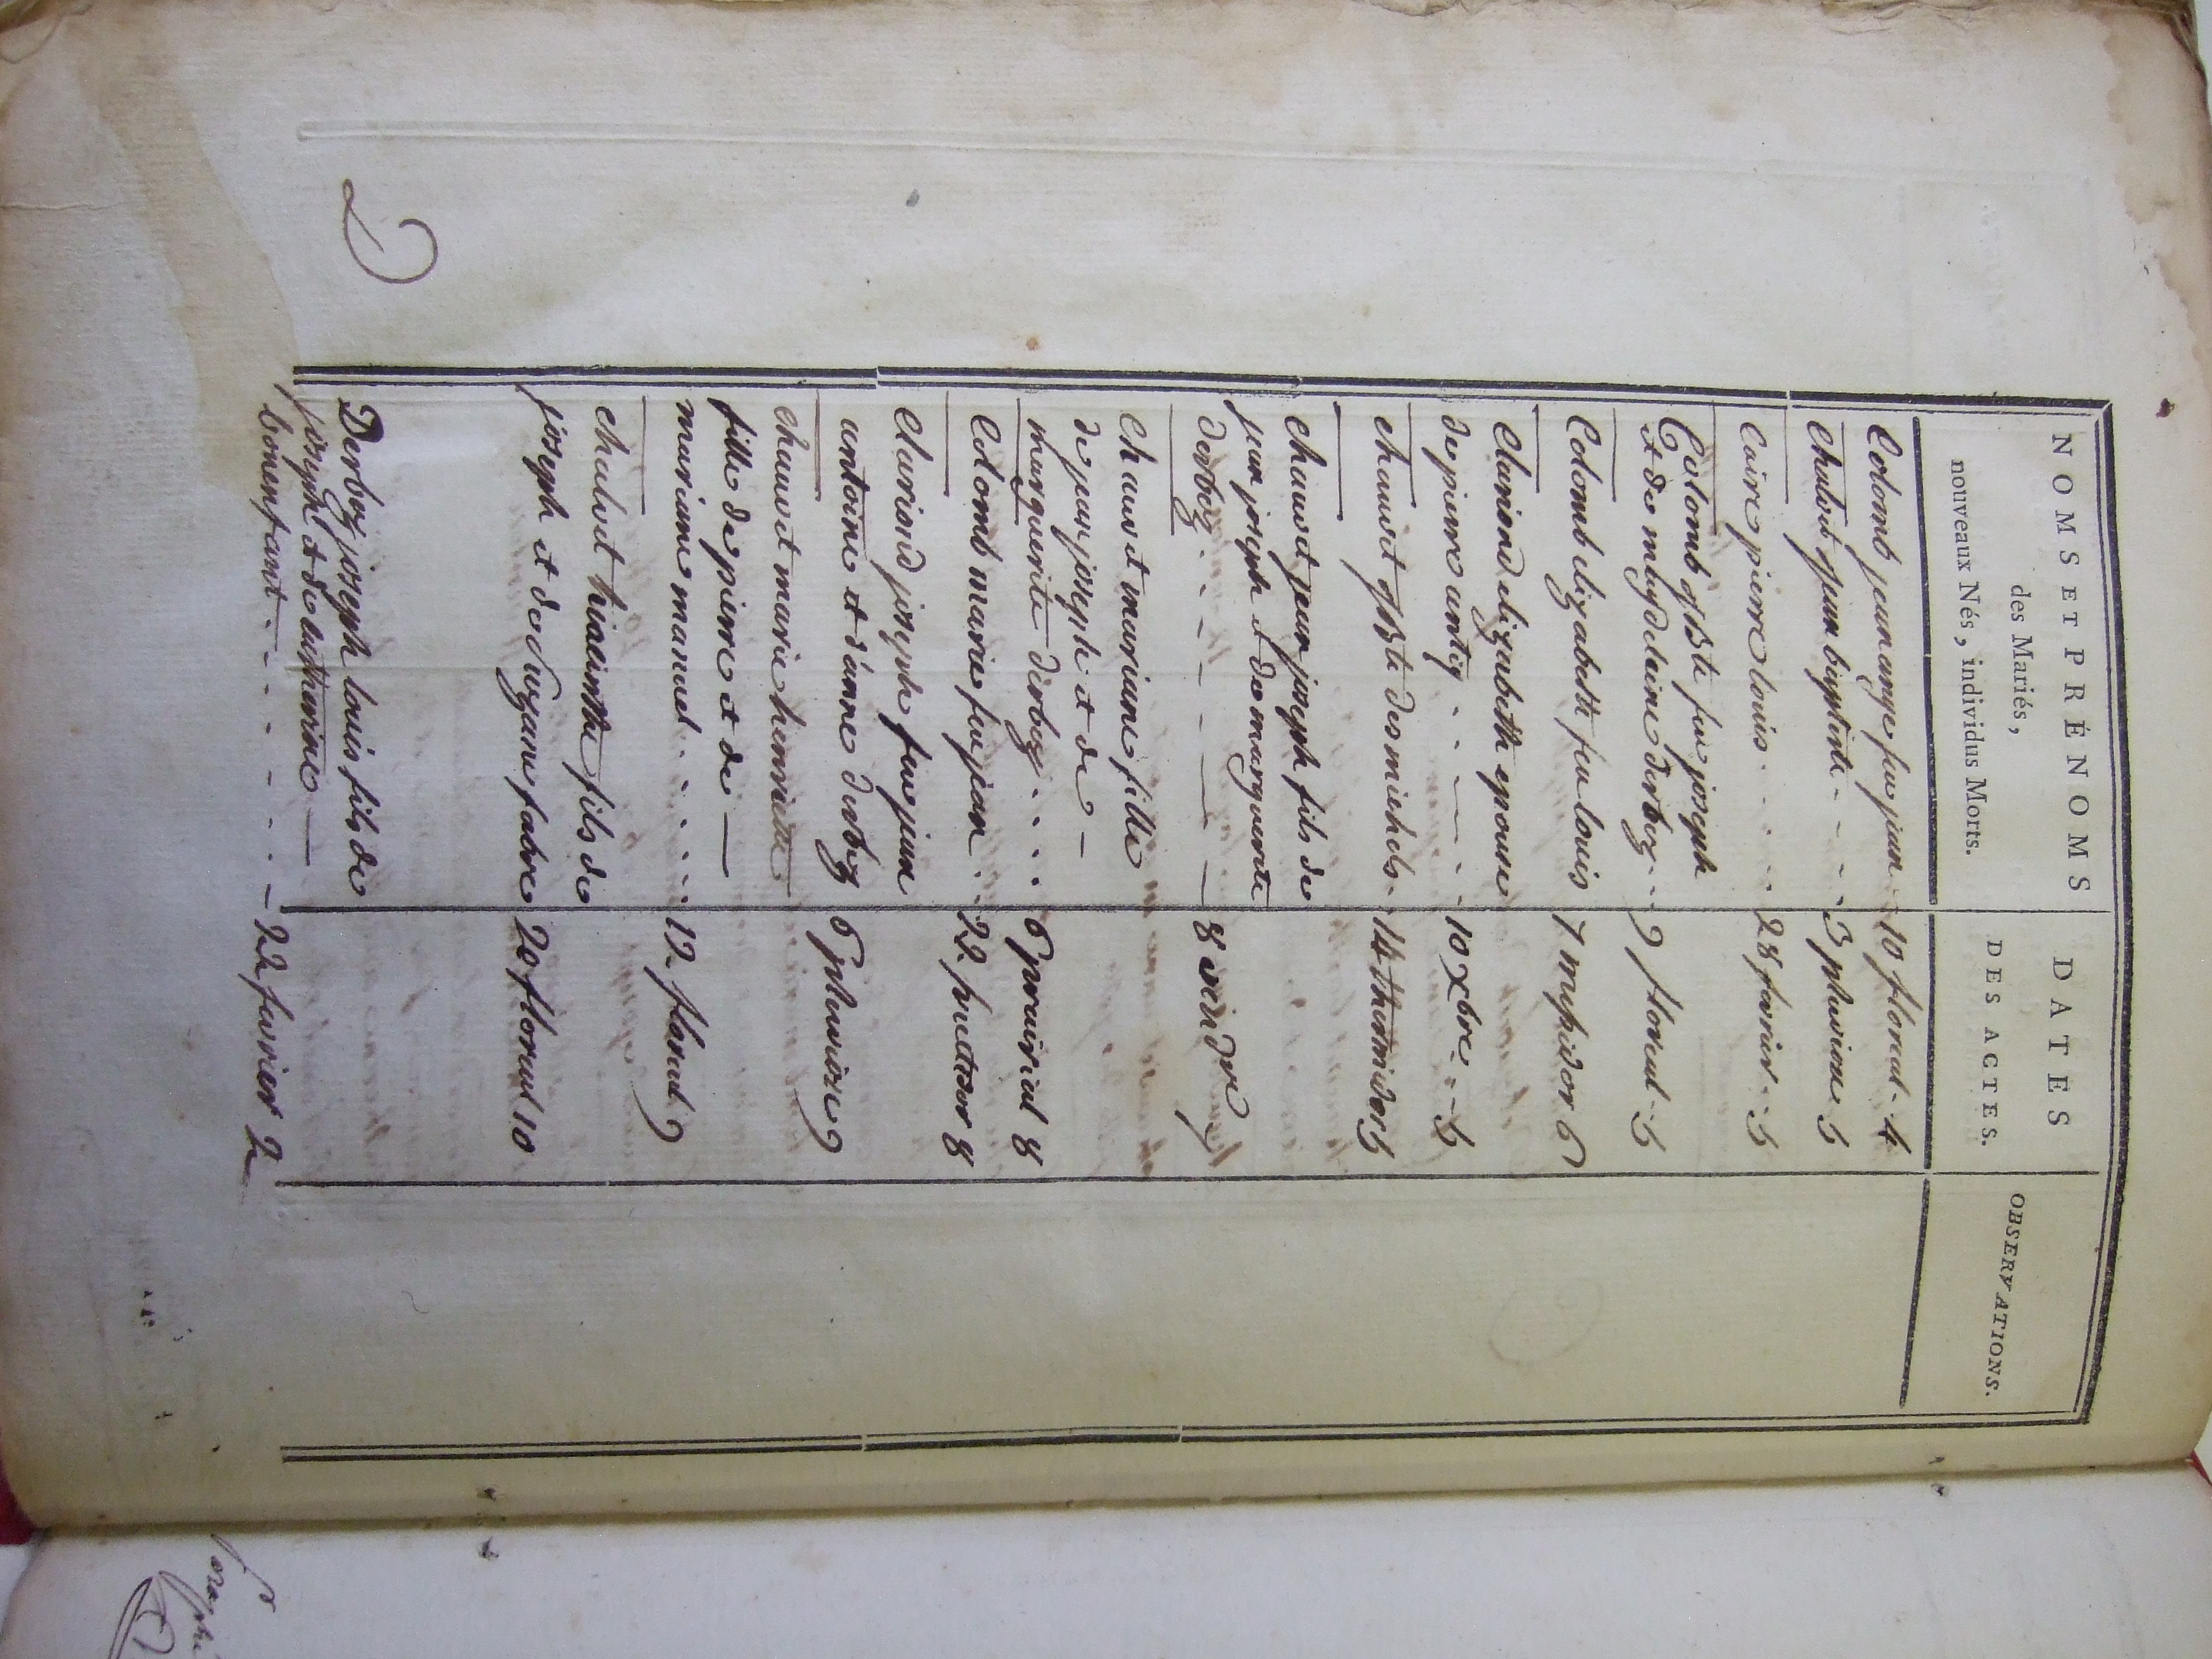 NOMS ET PRÉNOMS
des Mariés,
nouveaux Nés, individus Morts.
DATES
DES ACTES.
OBSERVATIONS.
Colomb jean ange feu jean 10 floreal. 4
Chalvet jean baptiste 3 pluviose 5
Caire pierre louis 28 fevrier 5
Colomb j Bte feu joseph
et de magdeleine derbez 9 floreal 5
Colomb elizabeth feu louis 7 messidor 6
Clariond elizabeth epouse
de pierre 10 xbre 5
chauvet j Bte des michels 14 thermidor 5
chauvet jean joseph fils de
jean joseph et de marguerite
derbez 8 vend.re 9
Chauvet mariane fille
de jean joseph et de
marguerite derbez 6 prairial 8
Colomb marie feu jean 22 fructidor 8
Clariond joseph feu jean
antoine et d'anne derbez 6 pluviose 9
chauvet marie henriette
fille de pierre et de
mariane manuel 12 floreal 9
chalvet hiacinthe fils de
joseph et de suzane fabre 20 floreal 10
D
Derbez joseph louis fils de
joseph et de catherine
bonenfant 22 fevrier 2